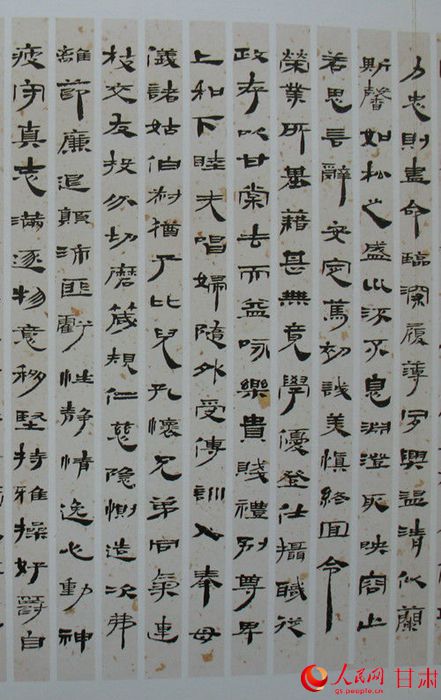 力忠則盡命臨深履薄夙興溫清似蘭
斯馨如松之盛川流不息淵澄取映容止
若思言辭安定篤初誠美慎終宜令
榮業所基藉甚無竟學優登仕攝職從
政存以甘棠去而益詠樂貴賤禮別尊卑
上和下睦夫唱婦隨外受傅訓入奉母
儀諸姑伯叔猶子比兒孔懷兄弟同氣連
枝交友投分切磨箴規仁慈隱惻造次弗
離節廉退顛沛匪虧性靜情逸心動神
疲守真志滿逐物意移堅持雅操好爵自
人民网 甘肃
gs.people.cn